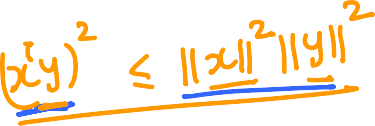 (xᵀy)² ≤ ||x||² ||y||²